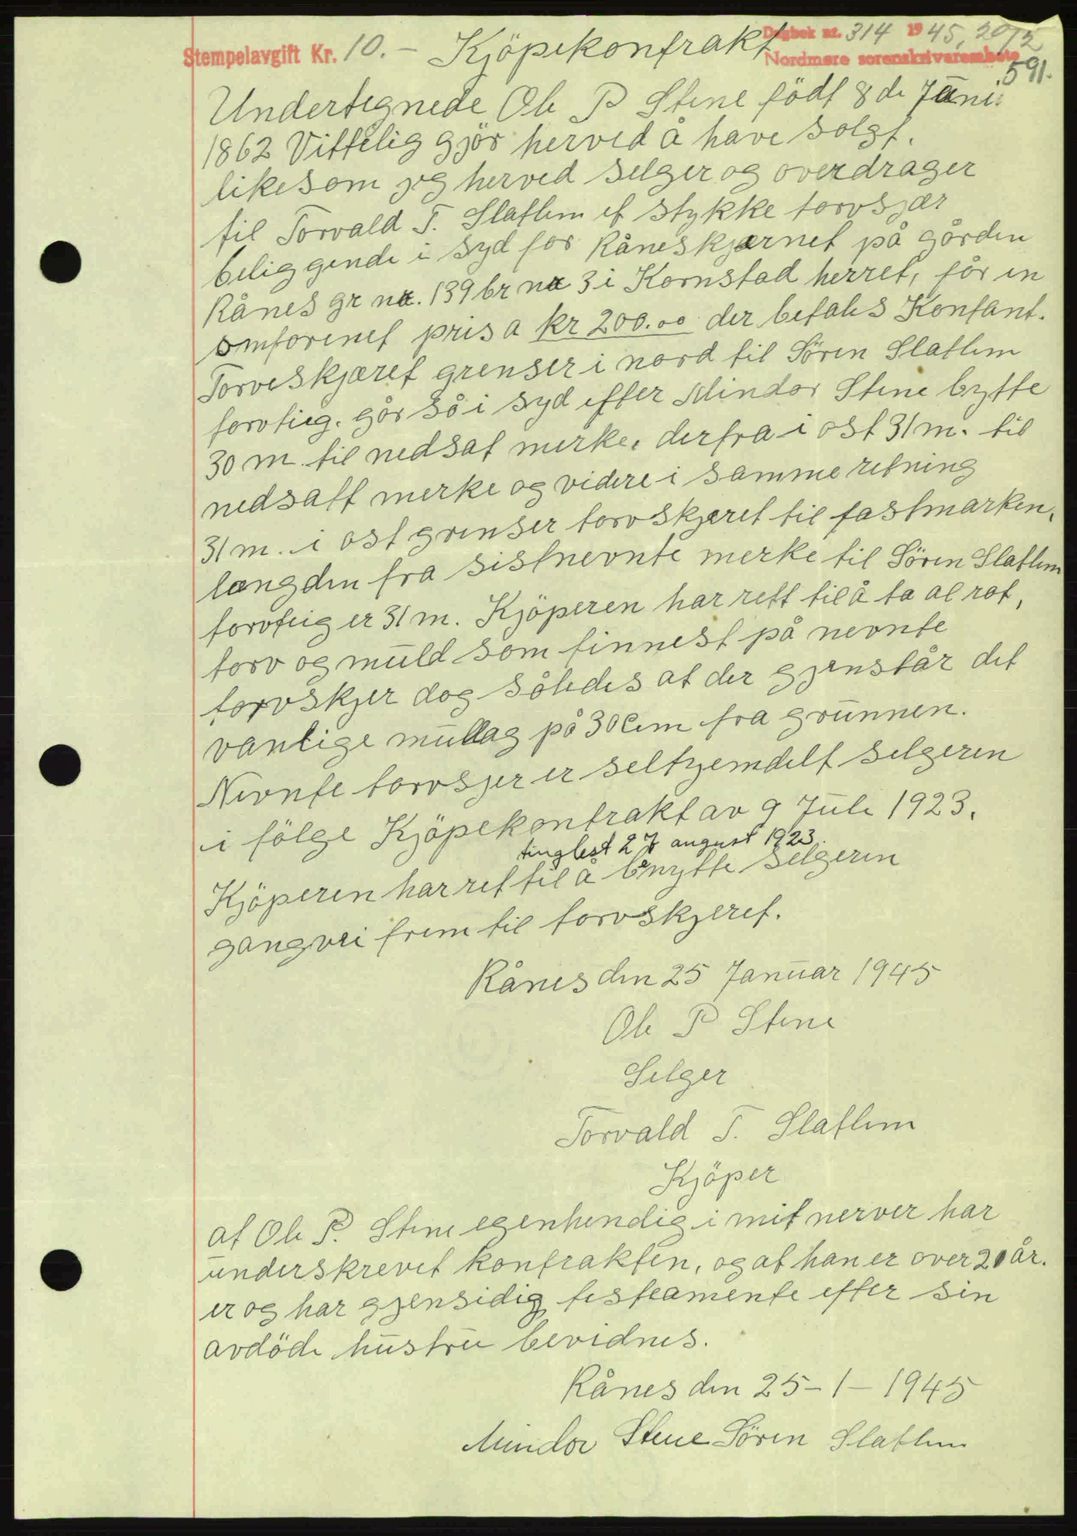 Stempelavgift Kr. 10.- Kjöpekontrakt
Dagbok nr. 314 1945, 20/2
Nordmøre sorenskriverembete
591.
Undertegnede Ole P Stene född 8 de Juni
1862 Vittelig gjör herved å have solgt.
likesom jeg herved selger og overdrager
til Torvald T. Slatlem et stykke torvsjær
beliggende i syd for Råneskjærnet på gården
Rånes gr nr. 139 br nr 3 i Kornstad herret, för en
omforenet pris a kr 200.00 der betales Kontant.
Torveskjæret grenser i nord til Sören Slatlem
torvtieg. går så i syd efter Mindor Stene bytte
30 m til nedsat merke, derfra i ost 31 m. til
nedsatt merke og videre i samme retning
31 m. i ost grenser torvskjeret til fastmarken.
længden fra sistnevnte merke til Sören Slatlem
torvteig er 31 m. Kjöperen har rett til å ta al rot,
torv og muld som finnest på nevnte
torvskjer dog således at der gjenstår det
vanlige mullag på 30 Cem fra grunnen.
Nevnte torvsjer er seltjemdelt selgeren
i fölge Kjöpekontrakt av 9 Juli 1923.
tinglest 27 august 1923.
Kjöperen har ret til å benytte selgeren
gangvei frem til torvskjeret.
Rånes den 25 Januar 1945
Ole P Stene
Selger
Torvald T. Slatlem
Kjöper
at Ole P. Stene egenhendig i mit nerver har
underskrevet kontrakten, og at han er over 21 år.
er og har gjensidig testeamente efter sin
avdöde hustru bevidnes.
Rånes den 25-1-1945
Mindor Stene Sören Slatlem